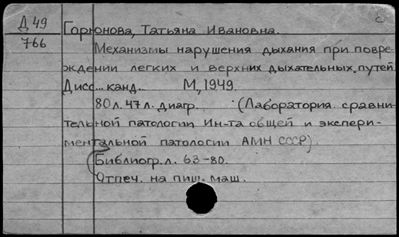 Д 49
766
Горюнова, Татьяна Ивановна.
Механизмы нарушения дыхания при повре-
ждении легких и верхних дыхательных путей.
Дисс... канд.. М., 1949.
80 л. 47 л. диагр. (Лаборатория сравни-
тельной патологии Ин-та общей и экспери-
ментальной патологии АМН СССР).
Библиогр. л. 63-80.
Отпеч. на пиш. маш.